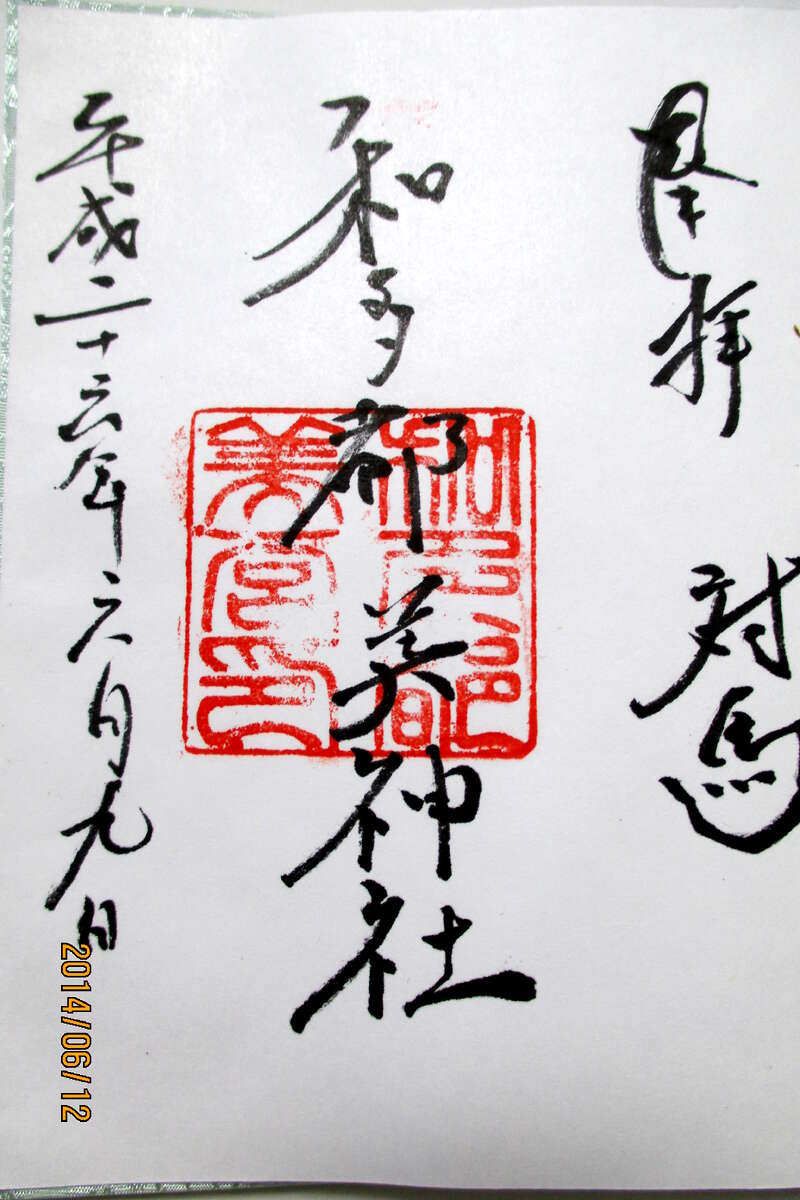 奉拝 対馬
和多都美神社
和多都美宮印
平成二十六年六月九日
2014/06/12